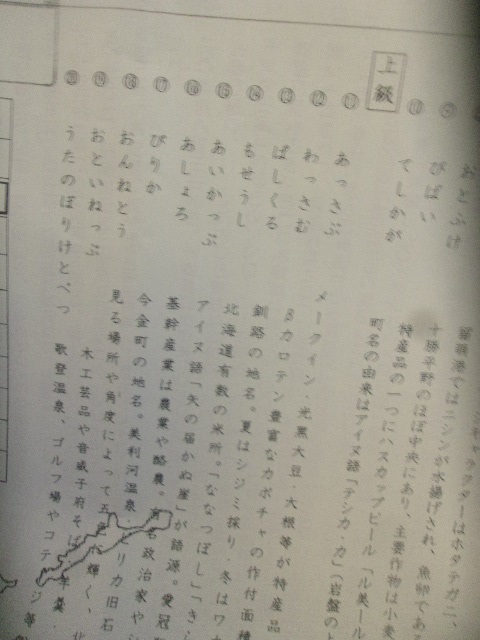 おとふけ
びばい
てしかが
上級
⑪ あっさぶ
⑫ わっさむ
⑬ ばしくる
⑭ もせうし
⑮ あいかっぷ
⑯ あしょろ
⑰ ぴりか
⑱ おんねとう
⑲ おといねっぷ
⑳ うたのぼりけとべつ
港ではニシンが水揚げされ、魚卵であ
十勝平野のほぼ中央にあり、主要作物は小麦
特産品の一つにハスカップビール「ル美ール
町名の由来はアイヌ語「テシカ・カ」（岩盤の上
メークイン・光黒大豆・大根等が特産品
βカロテン豊富なカボチャの作付面積
釧路の地名。夏はシジミ採り、冬はワカ
北海道有数の米所。「ななつぼし」「きら
アイヌ語「矢の届かぬ崖」が語源。愛冠
基幹産業は農業や酪農。有名政治家や
今金町の地名。美利河温泉 ピリカ旧石
見る場所や角度によって五色 輝く、北
木工芸品や音威子府そば 羊羹
歌登温泉、ゴルフ場やコテージ等が